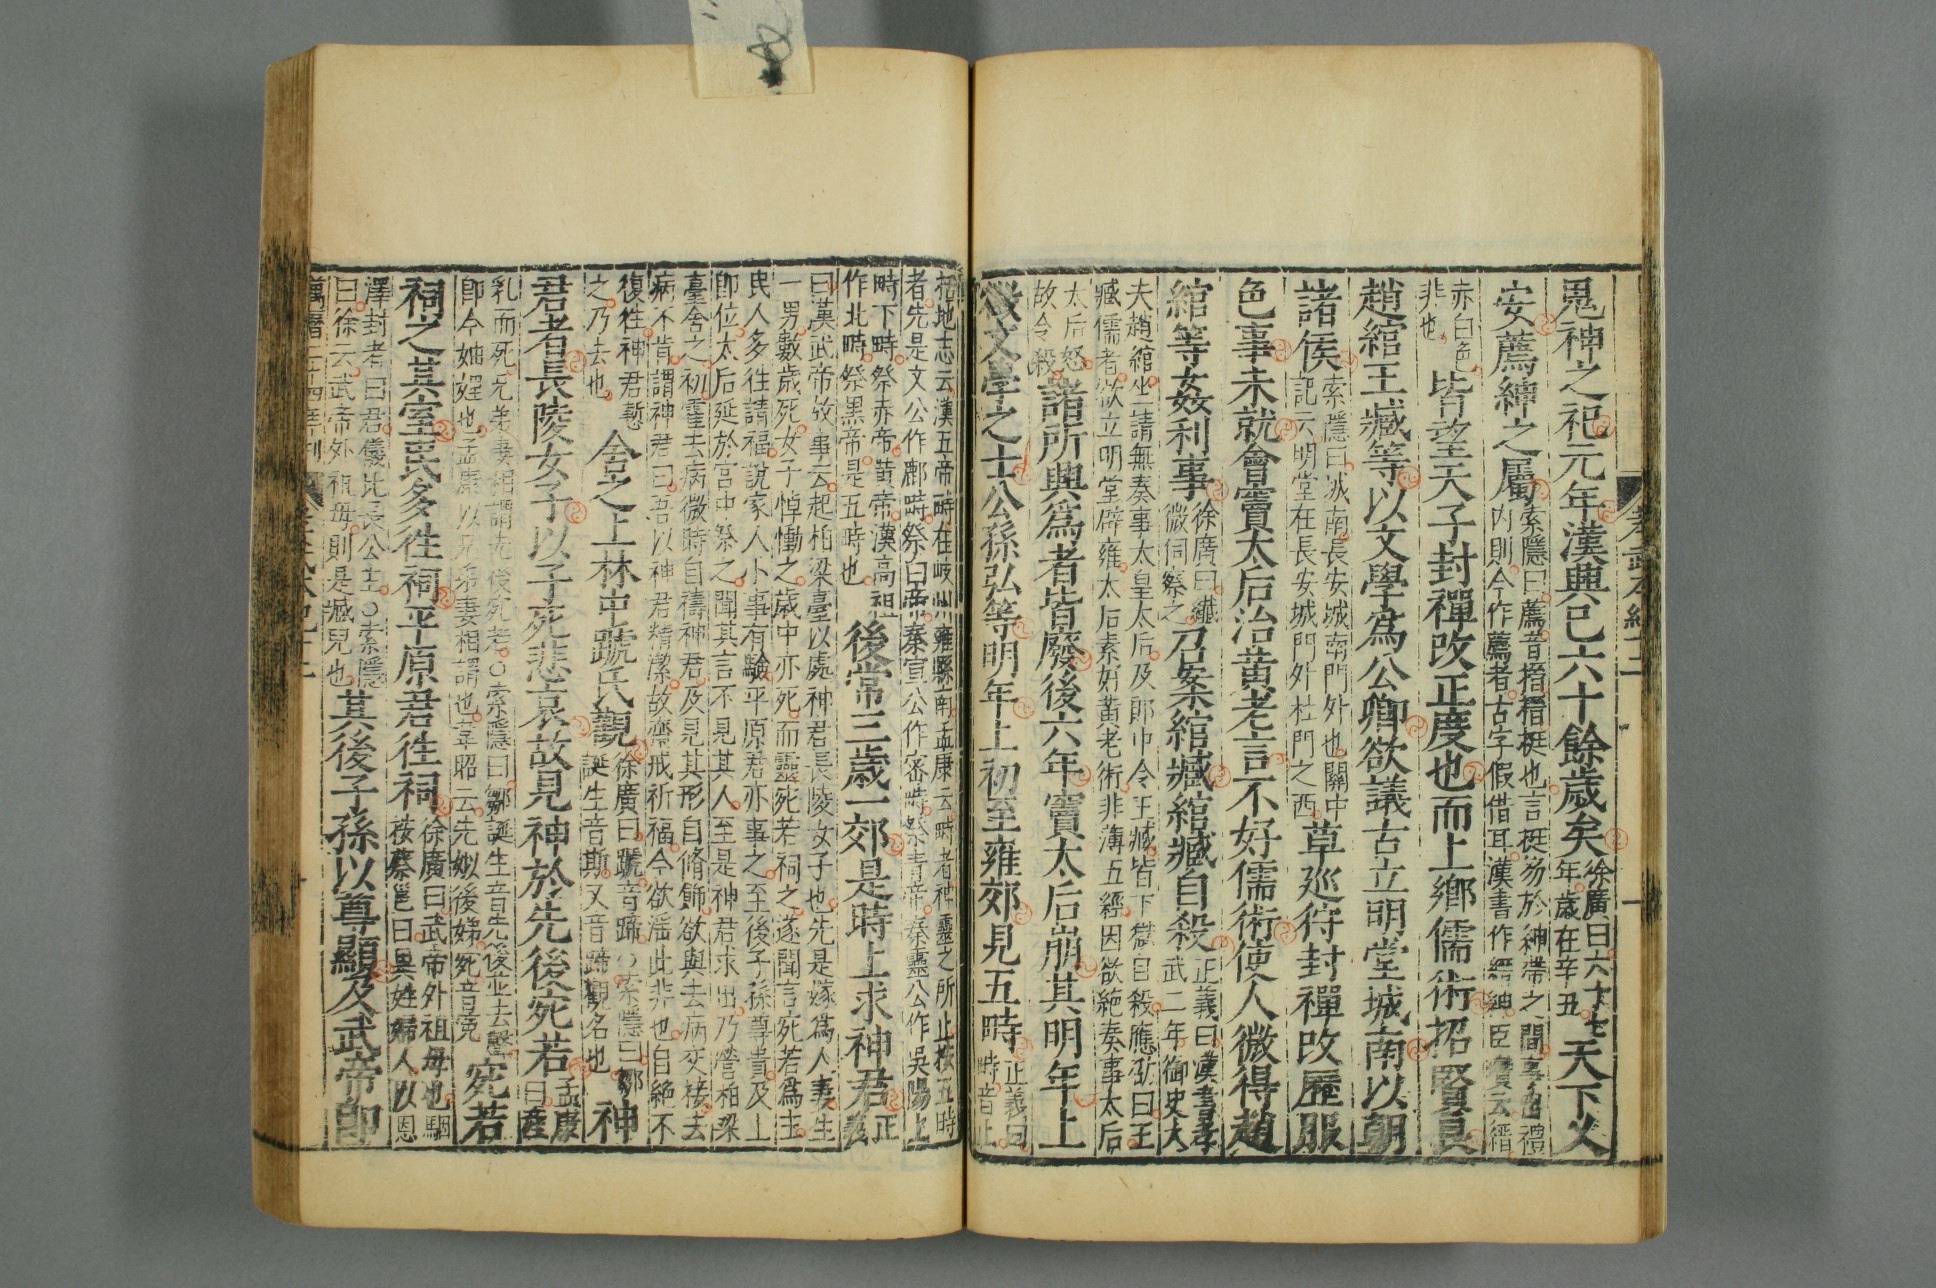 孝武本紀十二
一
鬼神之祀元年漢興已六十餘歲矣徐廣曰六十七年歲在辛丑天下乂
安薦紳之屬索隱曰薦音搢搢挺也言挺笏於神帶之間事出禮內則今作薦者古字假借耳漢書作縉紳臣瓚云縉赤白色非也
皆望天子封禪改正度也而上鄉儒術招賢良
趙綰王臧等以文學爲公卿欲議古立明堂城南以朝
諸侯索隱曰城南長安城南門外也關中記云明堂在長安城門外杜門之西草巡狩封禪改曆服
色事未就會竇太后治黃老言不好儒術使人微得趙
綰等姦利事徐廣曰纖微伺察之召案綰臧綰臧自殺正義曰漢書孝武二年御史大
夫趙綰坐請無奏事太皇太后及郎中令王臧皆下獄自殺應劭曰王
臧儒者欲立明堂辟雍太后素好黃老術非薄五經因欲絶奏事太后
太后怒故令殺諸所興爲者皆廢後六年竇太后崩其明年上
徵文學之士公孫弘等明年上初至雍郊見五畤正義曰畤音止
括地志云漢五帝畤在岐州雍縣南孟康云畤者神靈之所止按五畤
者先是文公作鄜畤祭白帝秦宣公作密畤祭青帝秦靈公作吳陽上
畤下畤祭赤帝黃帝漢高祖作北畤祭黑帝是五畤也後常三歲一郊是時上求神君正義
曰漢武帝故事云起柏梁臺以處神君長陵女子也先是嫁爲人妻生
一男數歲死女子悼慟之歲中亦死而靈宛若祠之遂聞言宛若爲主
民人多往請福說家人小事有驗平原君亦事之至後子孫尊貴及上
卽位太后延於宮中祭之聞其言不見其人至是神君求出乃營柏梁
臺舍之初霍去病微時自禱神君及見其形自脩飾欲與去病交接去
病不肯謂神君曰吾以神君精潔故齋戒祈福今欲淫此非也自絶不
復往神君慙之乃去也舍之上林中蹏氏觀徐廣曰蹏音蹄○索隱曰鄒誕生音斯又音蹄觀名也神
君者長陵女子以子死悲哀故見神於先後宛若孟康曰產
乳而死兄弟妻相謂先後宛若○索隱曰鄒誕生音先後並去聲
卽今妯娌也孟康以兄弟妻相謂也韋昭云先姒後娣宛音冤宛若
祠之其室民多往祠平原君往祠徐廣曰武帝外祖母也駰按蔡邕曰異姓婦人以恩
澤封者曰君儀比長公主○索隱曰徐云武帝外祖母則是臧兒也其後子孫以尊顯及武帝卽
萬曆二十四年刊